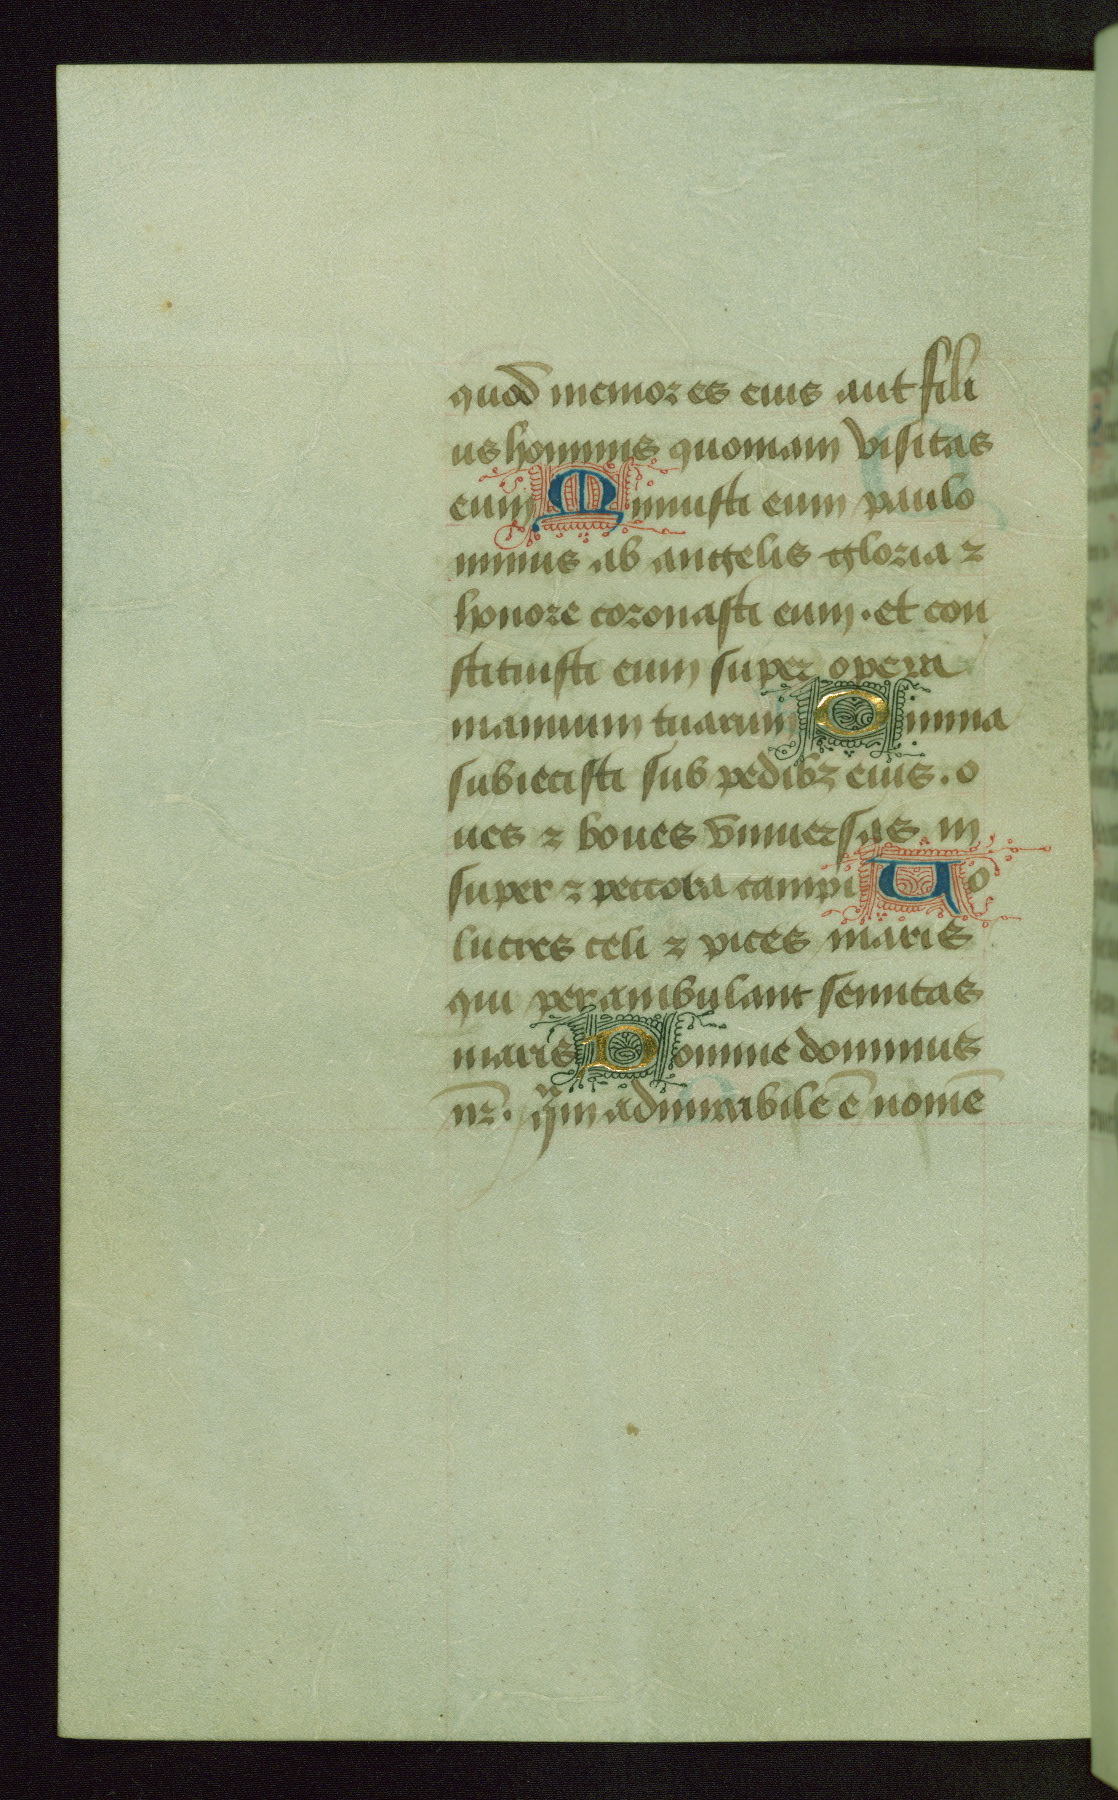 quod̄ memor es eius aut fili
us hominis quoniam visitas
eum Minuisti eum paulo
minus ab angelis gloria ⁊
honore coronasti eum. et con
stituisti eum super opera
manuum tuarum Omnia
subiecisti sub pedibꝫ eius. o
ues ⁊ boues vniuersas in
super ⁊ peccora campi Uo
lucres celi ⁊ pices maris
qui perambulant semitas
maris Domine dominus
nr̄. qᷓm admirabile ē nomē